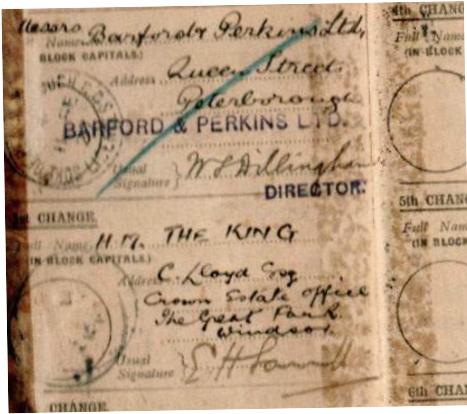 Messrs Barford & Perkins Ltd,
Name
BLOCK CAPITALS.)
Address Queen Street
Peterborough
BARFORD & PERKINS LTD.
Usual
Signature } W S Dillingham
DIRECTOR.
1st CHANGE.
Full Name H.M. THE KING
(IN BLOCK CAPITALS.)
Address C. Lloyd Esq
Crown Estate Office
The Great Park
Windsor.
Usual
Signature }
CHANGE.
4th CHANG
Full Nam
(IN BLOCK
5th CHANG
Full Nam
(IN BLOCK
6th CHAN